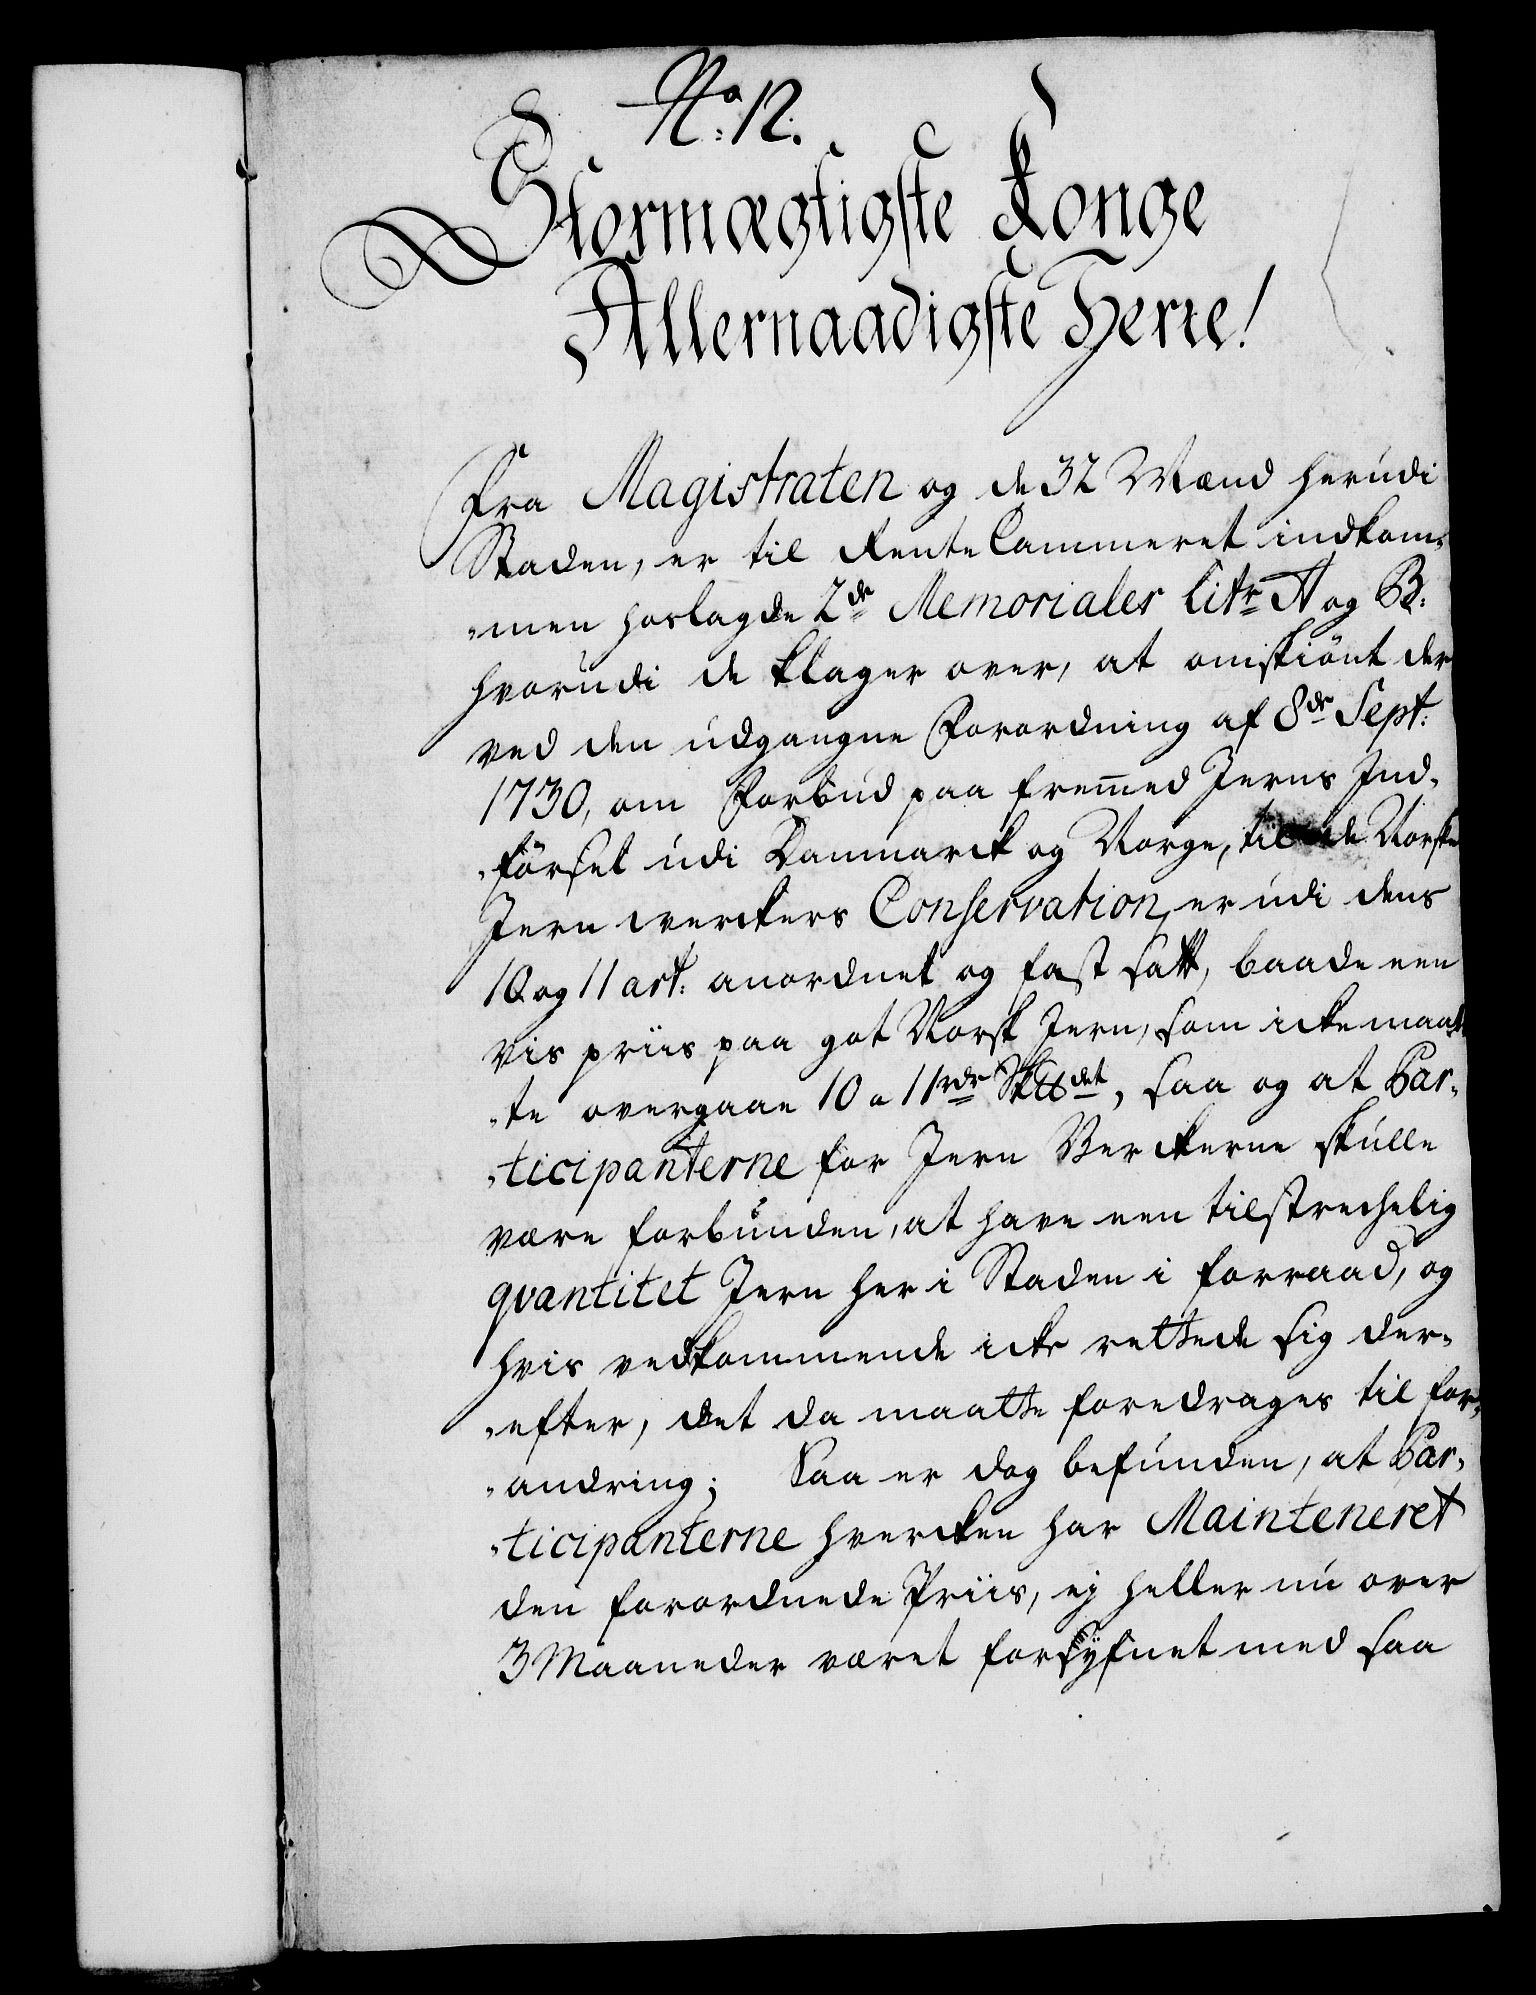 No: 12.
Stormægtigste Konge
Allernaadigste Herre!
Fra Magistraten og de 32 Mænd herudi
Staden, er til Rente Cammeret indkom-
-men hoslagde 2de Memorialer Litr A og B:
hvorudi de klager over, at omskiönt der
ved den udgangne Forordning af 8de Sept:
1730, om Forbud paa fremmed Jerns Ind-
-förset udi Danmarck og Norge, til de Norske
Jernwerckers Conservation, er udi dens
10 og 11 art: anordnet og fast satt, baade een
vis priis paa got Norsk Jern, som icke maat-
-te overgaae 10 a 11 rdr Sk℔det, saa og at Par-
-ticipanterne for Jern Verckerne skulle
være forbunden, at have een tilstrechelig
qvantitet Jern her i Staden i forraad, og
hvis vedkommende icke rettede sig der-
-efter, det da maatte foredrages til for-
-andring; Saa er dog befunden, at Par-
-ticipanterne hvercken har Mainteneret
den forordnede Priis, ej heller nu over
3 Maaneder været forsÿnet med saa